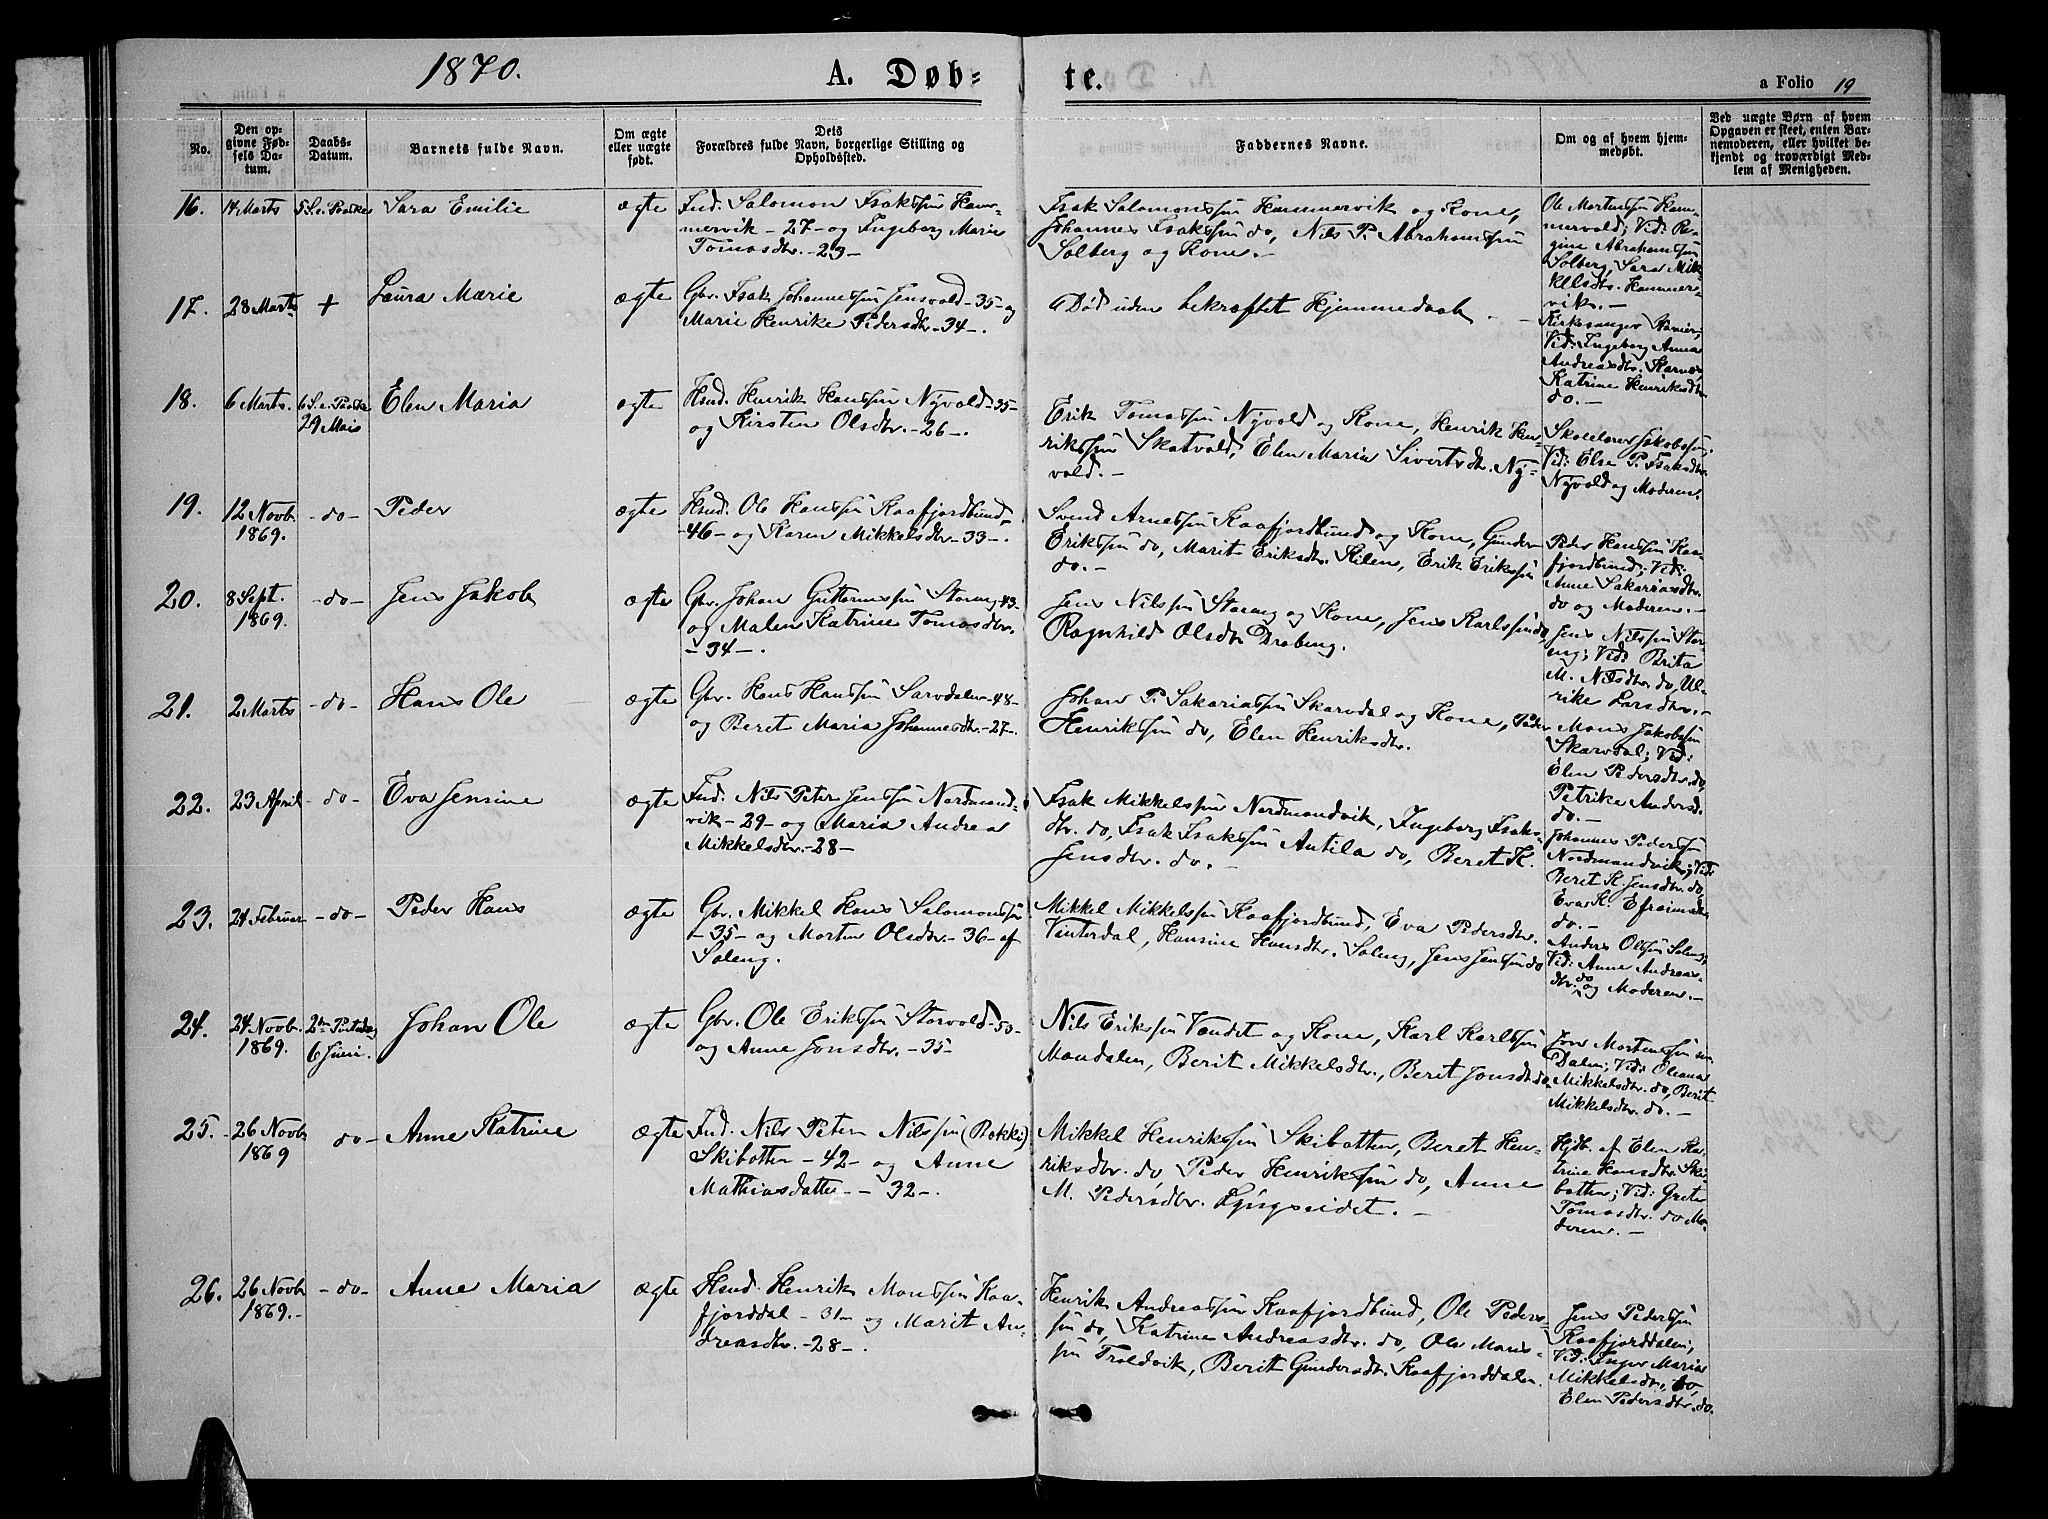 1870.
A. Døb-
te.
a Folio 19
No.
Den op-
givne Fød-
sels Da-
tum.
Daabs-
Datum.
Barnets fulde Navn.
Om ægte
eller uægte
født.
Dets
Forældres fulde Navn, borgerlige Stilling og
Opholdssted.
Faddernes Navne.
Om og af hvem hjem-
medøbt.
Ved uægte Børn af hvem
Opgaven er skeet, enten Bar-
nemoderen, eller hvilket be-
kjendt og troværdigt Med-
lem af Menigheden.
16.
14 Marts
5 S. e. Paaske
Sara Emilie
ægte
Ind. Salomon Isakssøn Ham-
mervik - 27 - og Ingeborg Marie
Tomasdtr. - 23 -
Isak Salomonssøn Hammervik og Kone,
Johannes Isakssøn do, Nils P. Abrahamssøn
Solberg og Kone. -
Ole Mortenssøn Ham-
mervold; Vid: Re-
gine Abrahamssøn
Solberg, Sara Mik-
kelsdtr. Hammer-
vik. -
17.
28 Marts
+
Laura Marie
ægte
Gbr. Isak Johannessøn Jensvold - 35 - og
Marie Henrike Pedersdtr. - 34 -.
Død uden bekræftet Hjemmedaab -
Kirkesanger
Vid: Ingeborg Anna
Andreasdtr. Karnes,
Katrine Henriksdtr.
do. -
18.
6 Marts.
6 S. e. Paaske
29 Mai
Elen Maria
ægte
Hsnd. Henrik Hanssøn Nyvold - 35 -
og Kirsten Olsdtr. - 26 -.
Erik Tomassøn Nyvold og Kone, Henrik Hen-
rikssøn Skatvold, Elen Maria Sivertsdtr. Ny-
vold. -
Skolelærer Jakobssøn,
Vid: Else P. Isaksdtr.
Nyvold og Moderen.
19.
12 Novb.
1869.
- do -
Peder
ægte
Hsnd. Ole Hanssøn Kaafjordbund -
- 46 - og Karen Mikkelsdtr. - 33 -.
Svend Arnessøn Kaafjordbund og Kone, Gunder
Erikssøn do, Marit Eriksdtr. Kilen, Erik Erikssøn
do. -
Peder Hanssøn Kaa-
fjordbund; Vid:
Anne Sakariasdtr.
do og Moderen. -
20.
8 Sept.
1869.
- do -
Jens Jakob
ægte
Gbr. Johan Guttormssøn Storeng - 43 -
og Malen Katrine Tomasdtr.
- 34 -.
Jens Nilssøn Storeng og Kone, Jens Karlssøn do,
Ragnhild Olsdtr. Drabeng.
Jens Nilssøn Stor-
eng; Vid: Brita
M. Nilsdtr. do, Ul-
rike Larsdtr. -
21.
2 Marts
- do -
Hans Ole
ægte
Gbr. Hans Hanssøn Savdalen - 48 -
og Beret Maria Johannesdtr. - 27 -.
Johan P. Sakariassøn Skarvdal og Kone, Peder
Henrikssøn do, Elen Henriksdtr.
Mons Jakobssøn
Skarvdal; Vid:
Elen Pedersdtr. do,
Petrike Andersd.
do. -
22.
23 April
- do -
Eva Jensine
ægte
Ind. Nils Peter Jenssøn Nordmand-
vik - 29 - og Maria Andrea
Mikkelsdtr. - 28 -
Isak Mikkelssøn Nordmandvik, Ingeborg Isaks-
dtr. do, Isak Isakssøn Antila do, Beret K.
Jensdtr. do.
Johannes Pederssøn
Nordmandvik; Vid:
Beret K. Jensdtr. do,
Eva K. Efraimsdtr.
do. -
23.
24 Februar
- do -
Peder Hans
ægte
Gbr. Mikkel Hans Salomonssøn
- 35 - og Morten Olsdtr. - 36 - af
Soleng.
Mikkel Mikkelssøn Kaafjordbund, Eva Pedersdtr.
Vinterdal, Hansine Hansdtr. Soleng, Jens Jenssøn do
Anders Olssøn Soleng,
Vid: Anne Andreas-
dtr. do og Moderen. -
24.
24 Novb.
1869.
2den Pintsedag
6 Juni.
Johan Ole
ægte
Gbr. Ole Erikssøn Storvold - 53 -
og Anne Jonsdtr. - 35 -
Nils Erikssøn Vandet og Kone, Karl Karlssøn
Mandalen, Berit Mikkelsdtr., Berit Jonsdtr. do.
Jon Mortenssøn
Dalen; Vid: Oleana
Mikkelsdtr. do, Berit
Mikkelsdtr. do. -
25. -
26 Novb.
1869
do -
Anne Katrine
ægte
Ind. Nils Peter Nilssøn (Bokki)
Skibotten - 42 - og Anne
Mathiasdatter - 32 -.
Mikkel Henrikssøn Skibotten, Beret Hen-
riksdtr. do, Peder Henrikssøn do, Anne
M. Pedersdtr. Lyngseidet. -
Hjdb. af Elen Ka-
trine Hansdtr. Ski-
botten; Vid: Grete
Tomasdtr. do Mo-
deren. -
26.
26 Novb.
1869. -
- do -
Anne Maria
ægte
Hsnd. Henrik Monssøn Kaa-
fjorddal - 31 - og Marit An-
dreasdtr. - 28 -.
Henrik Andreassøn Kaafjordbund, Ole Peders-
søn do, Katrine Andreasdtr. do, Ole Mons-
søn Troldvik, Berit Gundersdtr. Kaafjorddalen.
Jens Pederssøn
Kaafjorddalen;
Vid: Inger Maria
Mikkelsdtr. do,
Elen Pedersdtr. do.